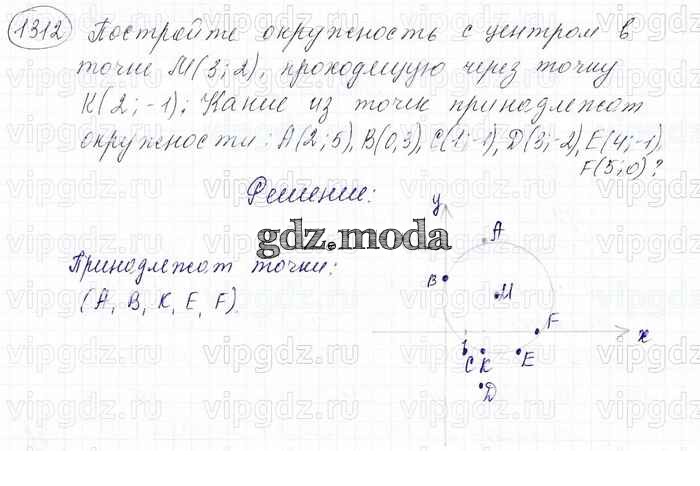 1312 Постройте окружность с центром в
точке M(3;2), проходящую через точку
K(2;-1). Какие из точек принадлежат
окружности: A(2;5), B(0,3), C(1;-1), D(3;-2), E(4;-1),
F(5;0)?
Решение:
gdz.moda
Принадлежат точки:
(A, B, K, E, F)
y
A
B
M
F
x
1
C K E
D
vipgdz.ru vipgdz.ru vipgdz.ru vipgdz.ru